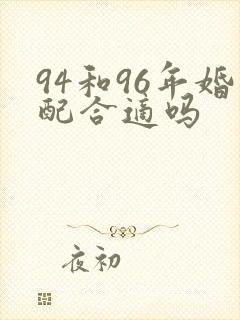 94和96年婚
配合适吗
夜初